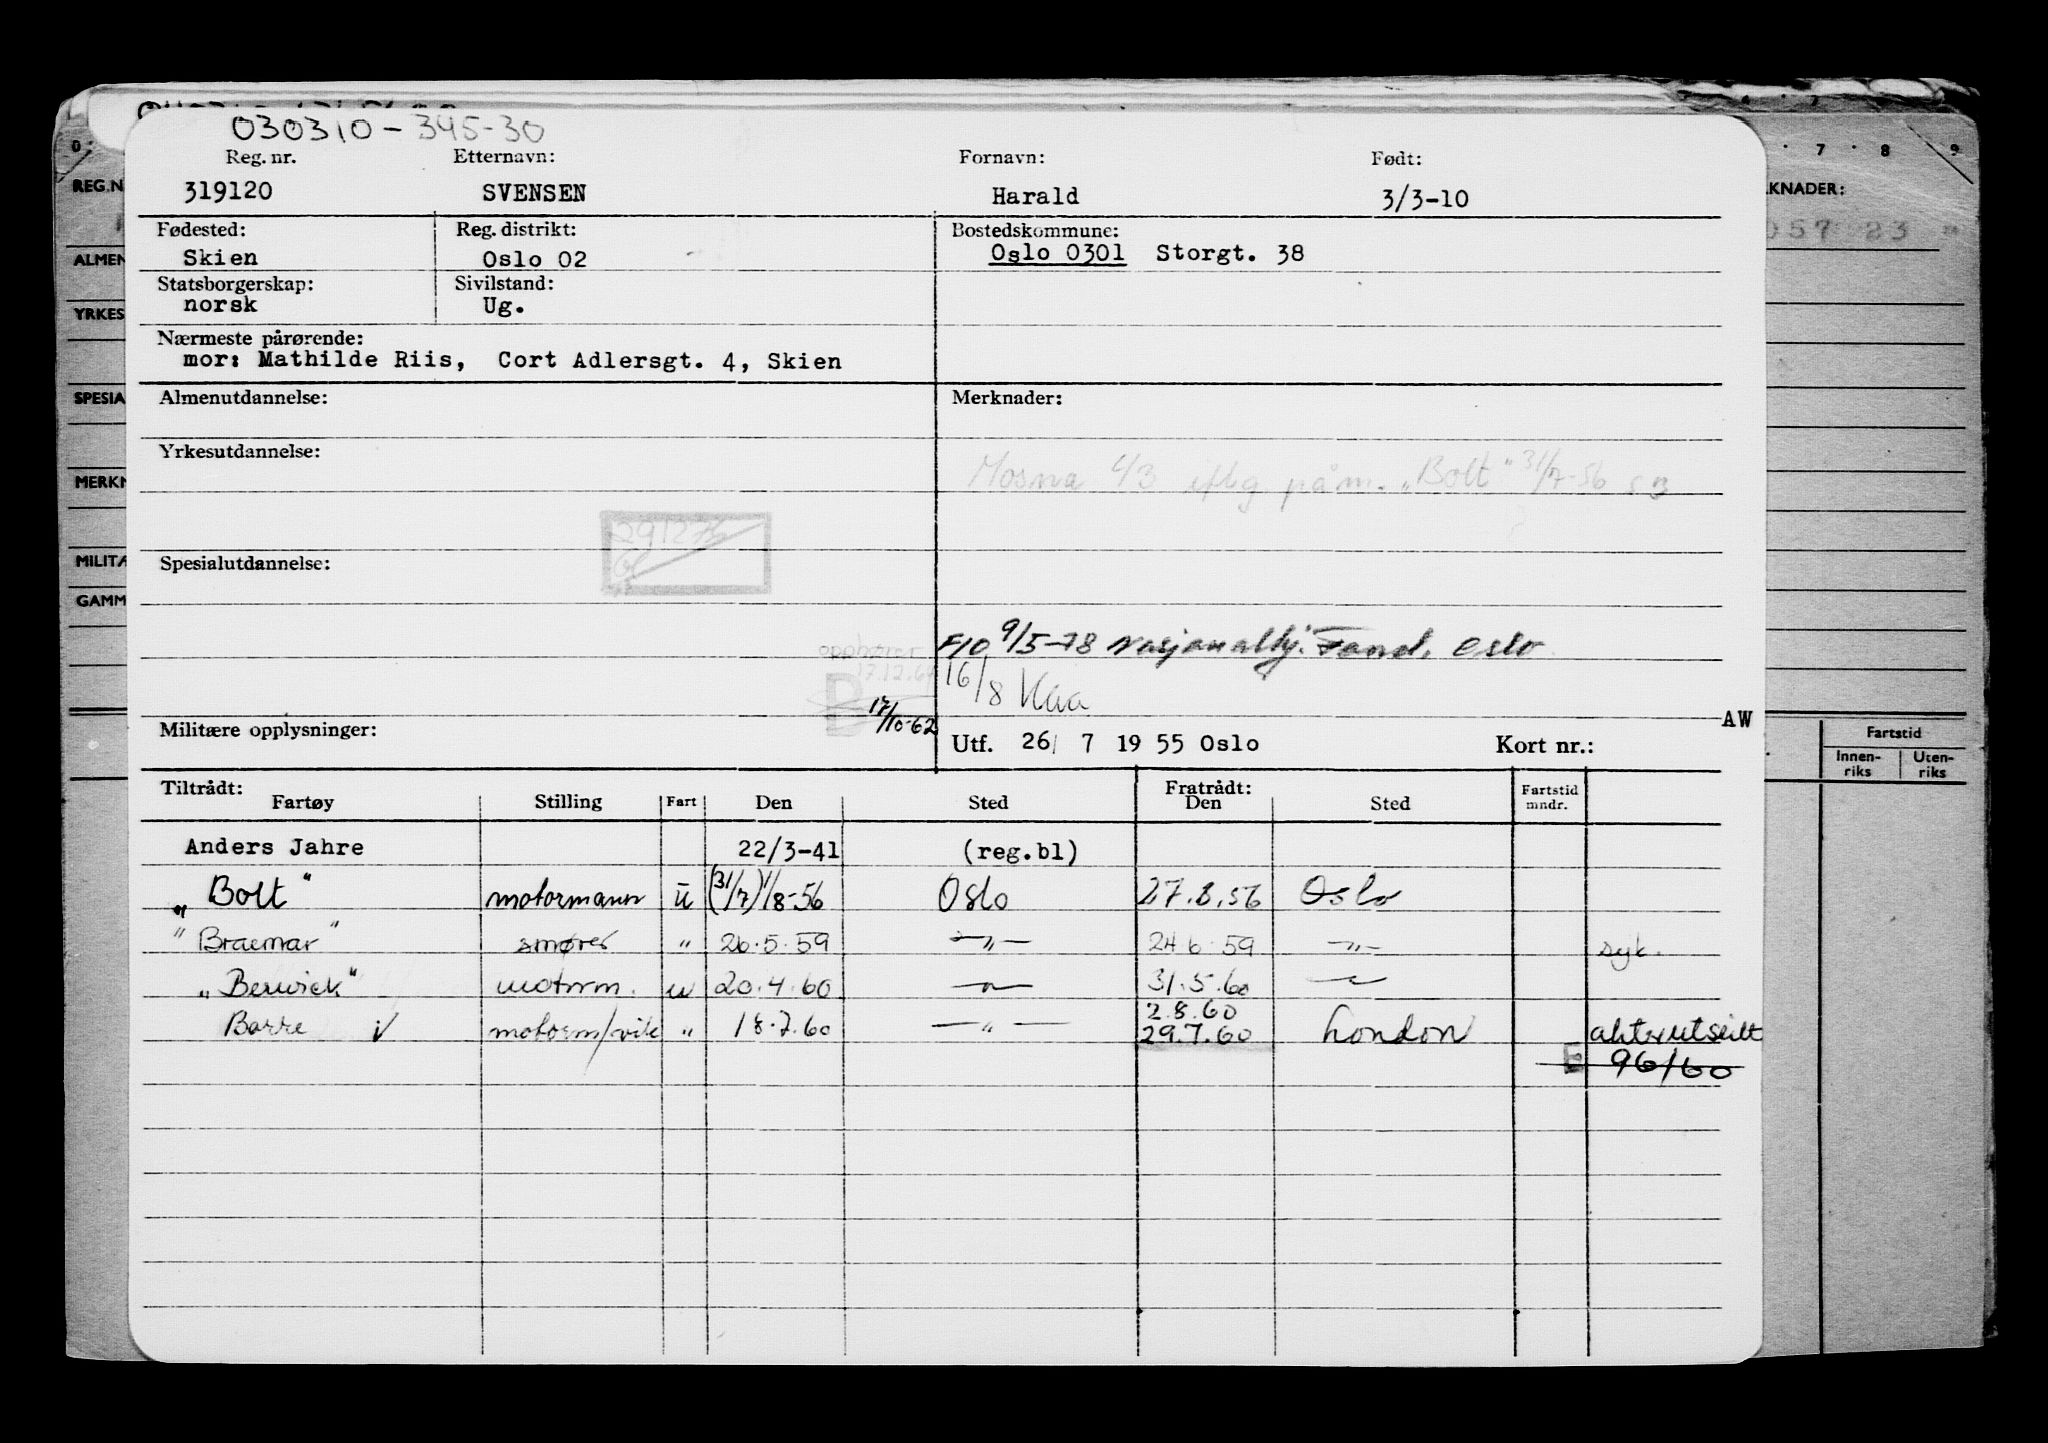 030310-345-30
Reg. nr. Etternavn: Fornavn: Født:
319120 SVENSEN Harald 3/3-10
Fødested: Reg. distrikt: Bostedskommune:
Skien Oslo 02 Oslo 0301 Storgt. 38
Statsborgerskap: Sivilstand:
norsk Ug.
Nærmeste pårørende:
mor: Mathilde Riis, Cort Adlersgt. 4, Skien
Almenutdannelse: Merknader:
Yrkesutdannelse:
Mosna 4/3 iflg påm. „Bolt" 31/7-56
291276
Spesialutdannelse:
F10 9/5-78 Nasjonalhj. Fond, Oslo
opphører
17.12.64
16/8 Kaa
B
17/10-62
AW
Militære opplysninger: Utf. 26/ 7 19 55 Oslo Kort nr.:
Tiltrådt: Fratrådt:
Fartøy Stilling Fart Den Sted Den Sted Fartstid mndr.
Anders Jahre 22/3-41 (reg.bl)
„Bolt" motormann u (31/7) 1/8-56 Oslo 27.8.56 Oslo
"Braemar" smører " 26.5.59 —"— 24.6.59 —"— syk.
„Berwick" motorm. u 20.4.60 —"— 31.5.60 —"—
2.8.60
Borre i/ motorm/vik " 18.7.60 —"— 29.7.60 London akterutseilt
E 96/60
0 7 8 9
REG.N
KNADER:
057 23
ALMEN
YRKES
SPESIA
MERKN
MILITÆ
GAMM
Fartstid
Innen-riks Uten-riks